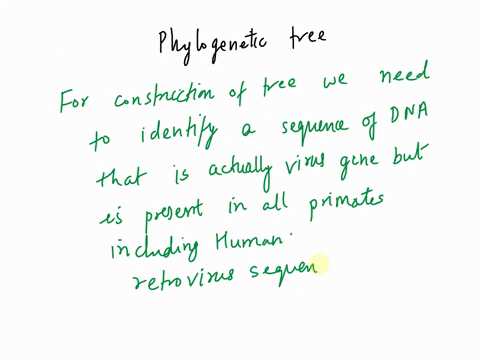 Phylogenetic tree
For construction of tree we need
to identify a sequence of DNA
that is actually virus gene but
is present in all primates
including Human.
retrovirus sequen